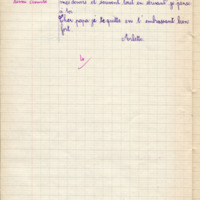 mes devoirs et souvent tout en écrivant je pense
à toi.
Cher papa je te quitte en t'embrassant bien
fort.
Arlette